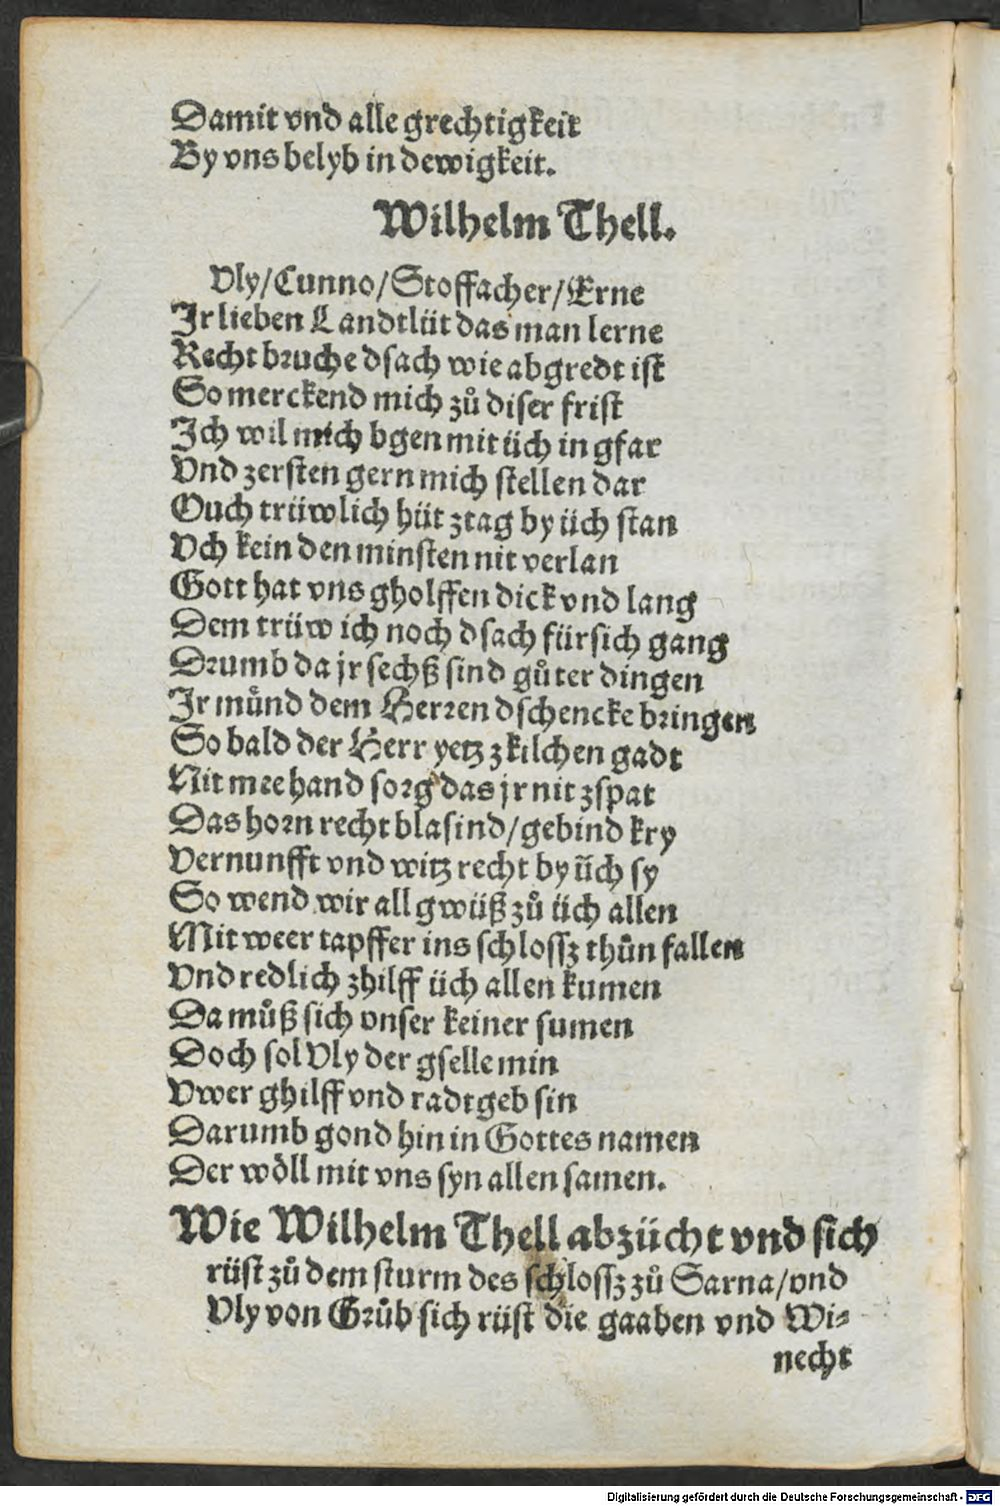 Damit vnd alle grechtigkeit
By vns belyb in dewigkeit.
Wilhelm Thell.
Vly/Cunno/Stoffacher/Erne
Jr lieben Landtlüt das man lerne
Recht bruche dsach wie abgredt ist
So merckend mich zů diser frist
Jch wil mich bgen mit üch in gfar
Vnd zersten gern mich stellen dar
Ouch trüwlich hüt ztag by üch stan
Vch kein den minsten nit verlan
Gott hat vns gholffen dick vnd lang
Dem trüw ich noch dsach für sich gang
Drumb da jr sechß sind gůter dingen
Jr můnd dem Herren dschencke bringen
So bald der Herr yetz zkilchen gadt
Nit mee hand sorg das jr nit zspat
Das horn recht blasind/gebind kry
Vernunfft vnd witz recht by üch sy
So wend wir all gwüß zů üch allen
Mit weer tapffer ins schlossz thůn fallen
Vnd redlich zhilff üch allen kumen
Da můß sich vnser keiner sumen
Doch sol Vly der gselle min
Vwer ghilff vnd radtgeb sin
Darumb gond hin in Gottes namen
Der wöll mit vns syn allen samen.
Wie Wilhelm Thell abzücht vnd sich
rüst zů dem sturm des schlossz zů Sarna/vnd
Vly von Grůb sich rüst die gaaben vnd Wi⸗
necht
Digitalisierung gefördert durch die Deutsche Forschungsgemeinschaft - DFG